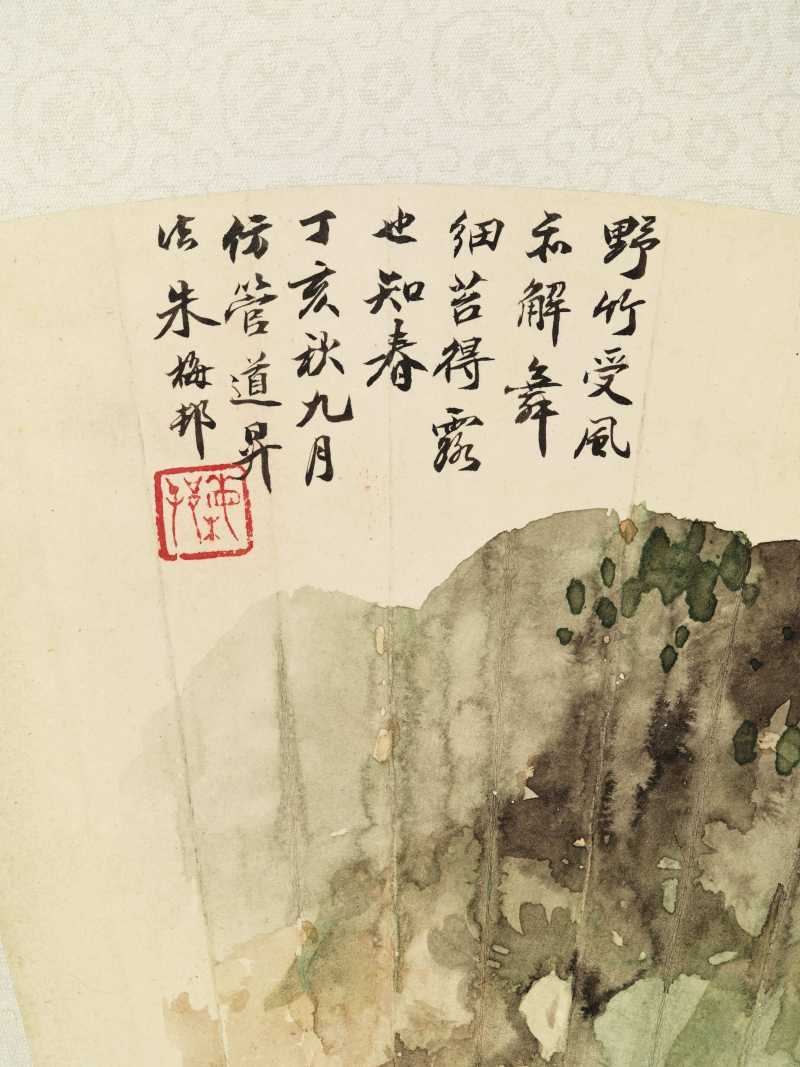 野竹受風
和解舞
細苔得露
也知春
丁亥秋九月
仿管道昇
法朱梅邨